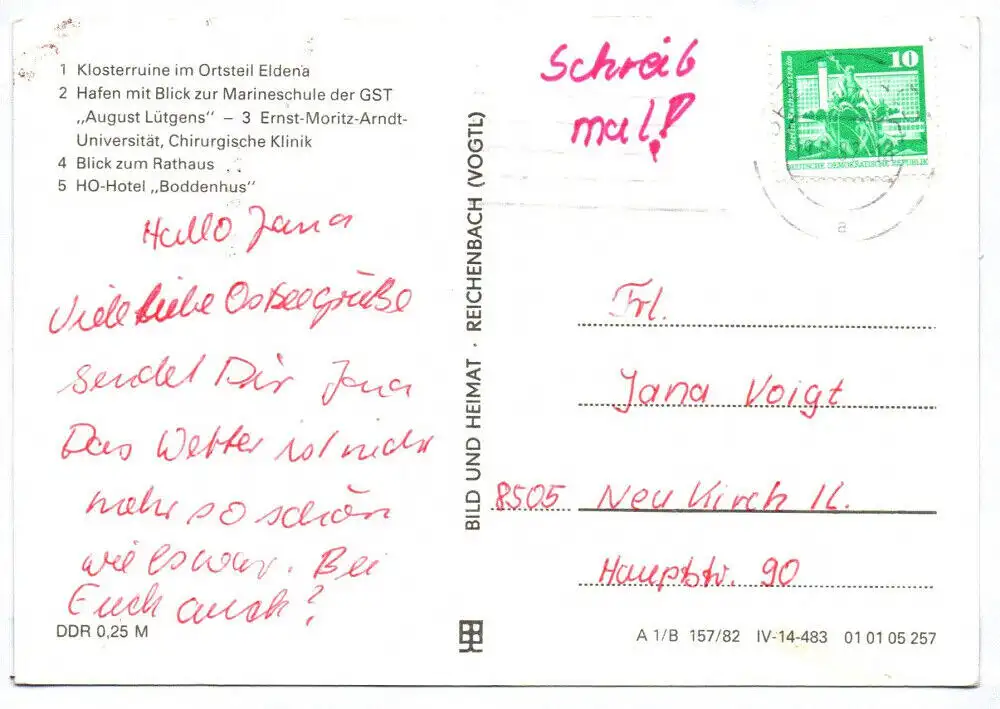 1 Klosterruine im Ortsteil Eldena
2 Hafen mit Blick zur Marineschule der GST
„August Lütgens" – 3 Ernst-Moritz-Arndt-
Universität, Chirurgische Klinik
4 Blick zum Rathaus
5 HO-Hotel „Boddenhus"
Hallo Jana
Viele liebe Ostseegrüße
sendet Dir Jana
Das Wetter ist nicht
mehr so schön
wie es war. Bei
Euch auch?
DDR 0,25 M
BILD UND HEIMAT · REICHENBACH (VOGTL)
Schreib
mal!
10
DEUTSCHE DEMOKRATISCHE REPUBLIK
a
Frl.
Jana Voigt
8505 Neukirch IL.
Hauptstr. 90
A 1/B 157/82 IV-14-483 01 01 05 257